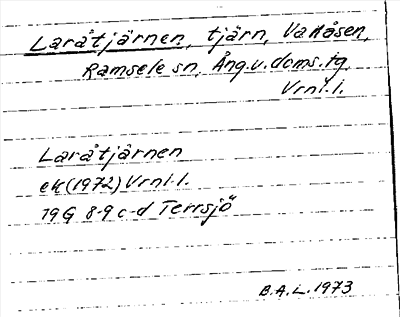 Laråtjärnen, tjärn, Vallåsen,
Ramsele sn, Ång.v.doms.tg
Vrnl.l.
Laråtjärnen
ek (1972) Vrnl.l.
19G 8-9 c-d Terrsjö
B.A.L. 1973